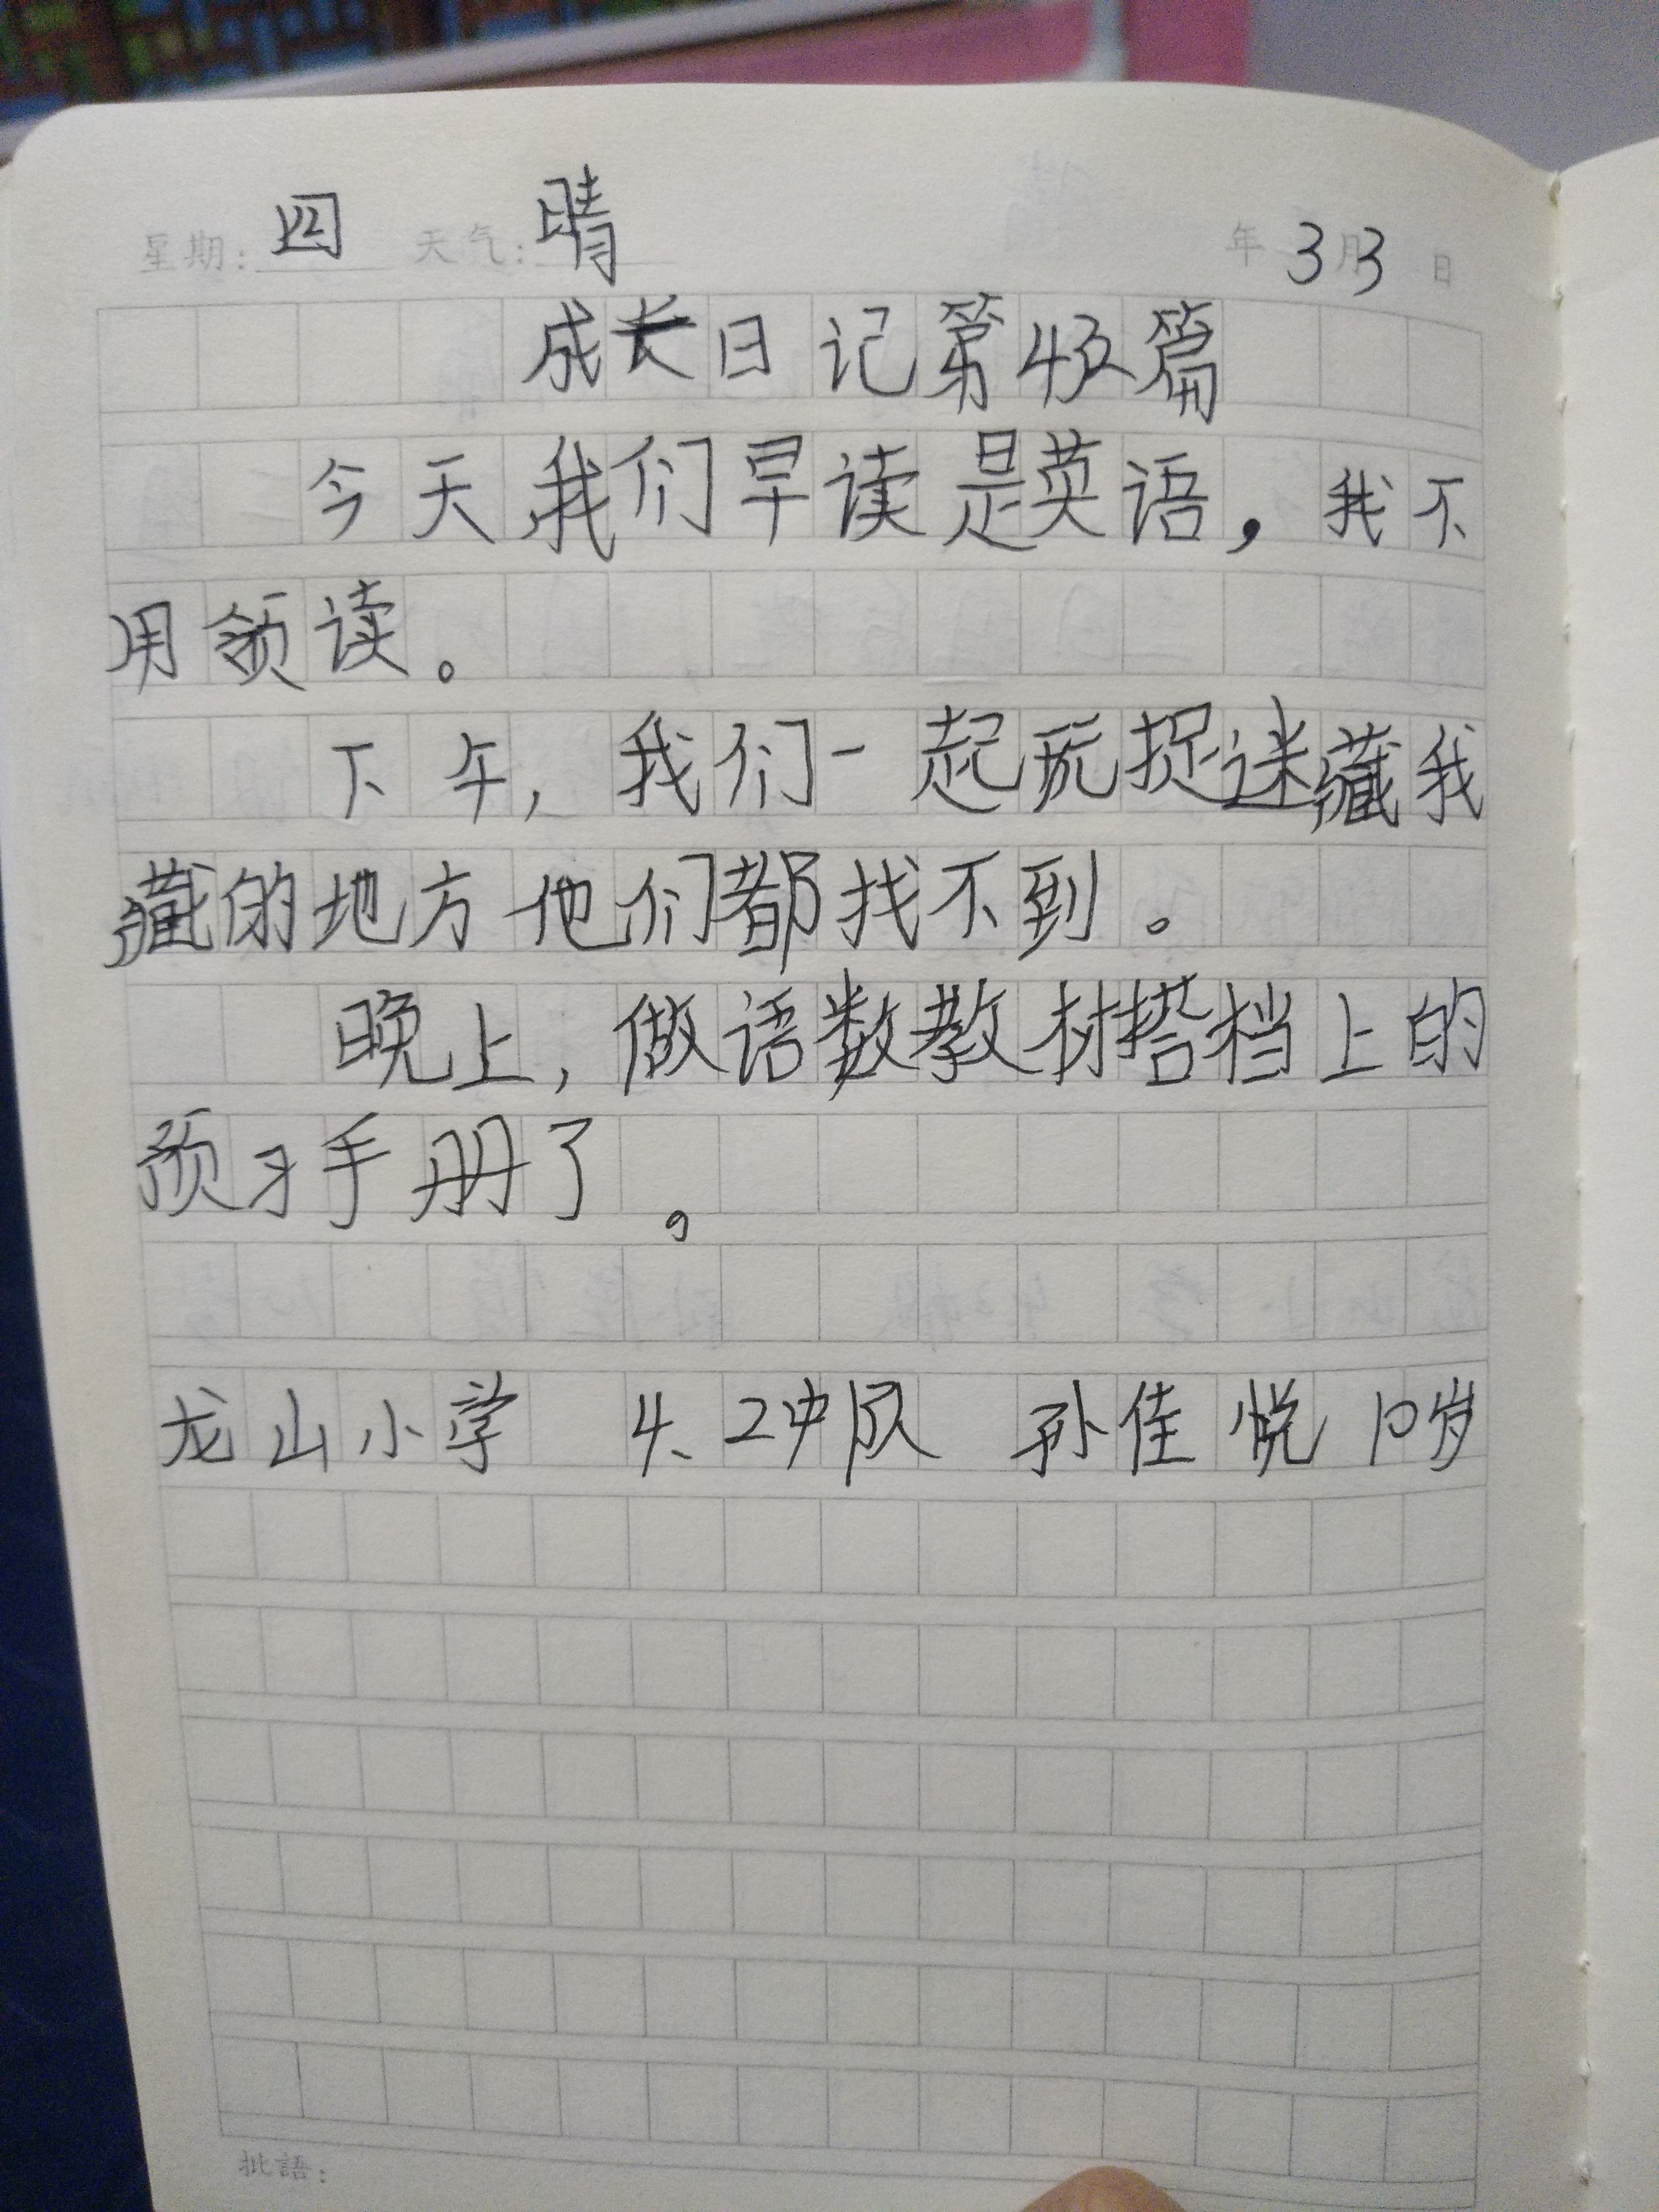 星期：四 天气：晴 年3月3日
成长日记第43篇
今天我们早读是英语，我不
用领读。
下午，我们一起玩捉迷藏我
藏的地方他们都找不到。
晚上，做语数教材搭档上的
预习手册了。
龙山小学 4、2中队 孙佳悦 10岁
批語：